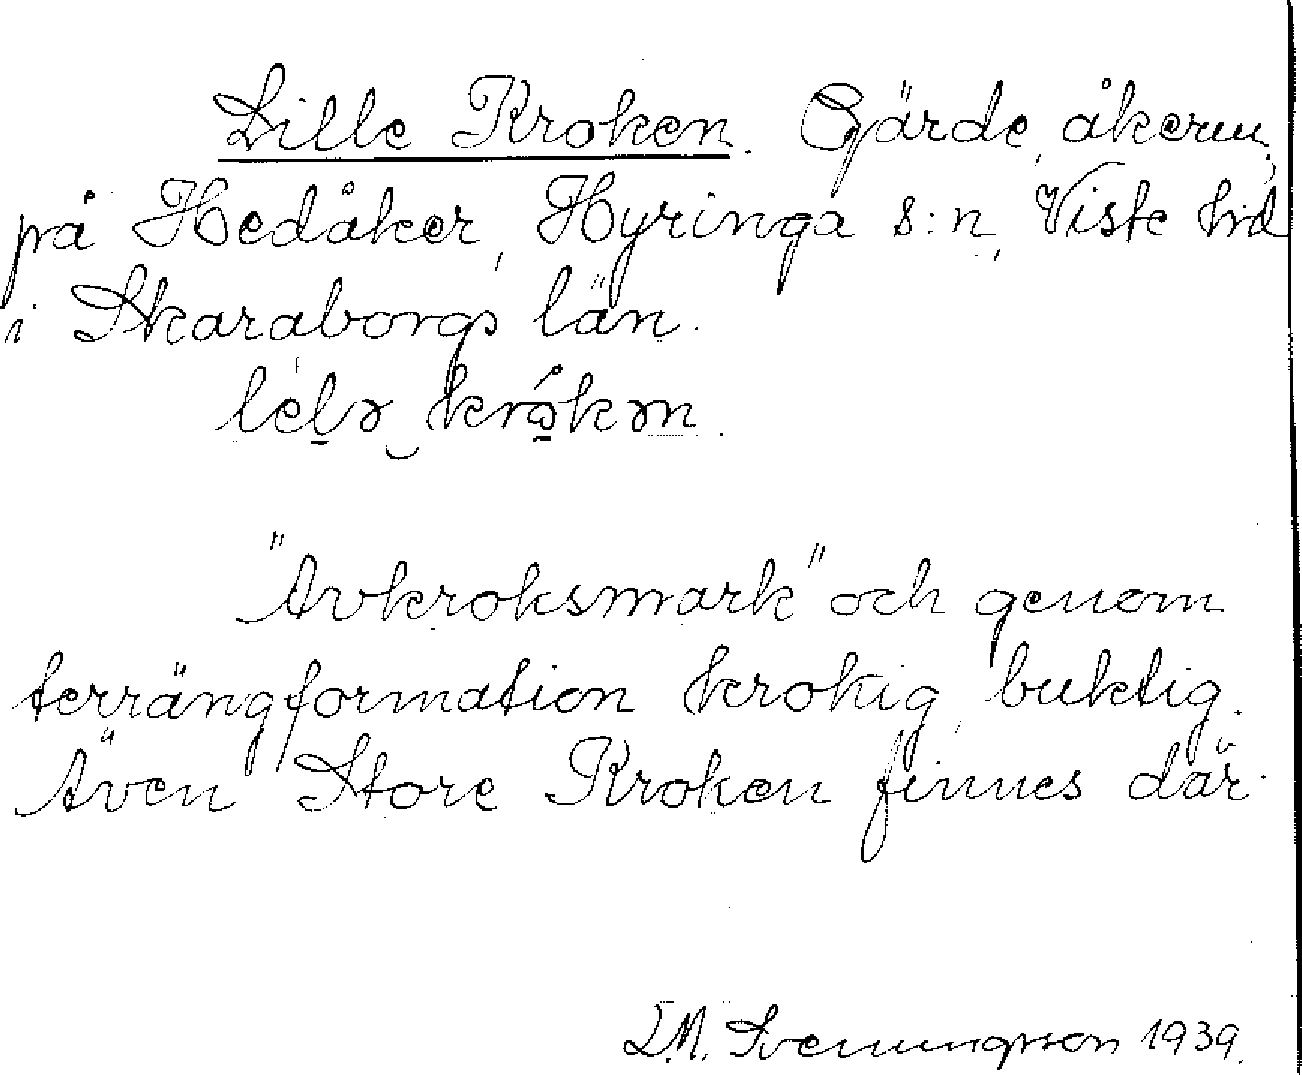 Lille Kroken. Gärde, åkerm,
på Hedåker, Hyringa s:n, Viste hd
i Skaraborgs län.
krókən.
"Avkroksmark" och genom
terrängformation krokig, buktig.
Även Store Kroken finnes där.
Svenungsson 1939.